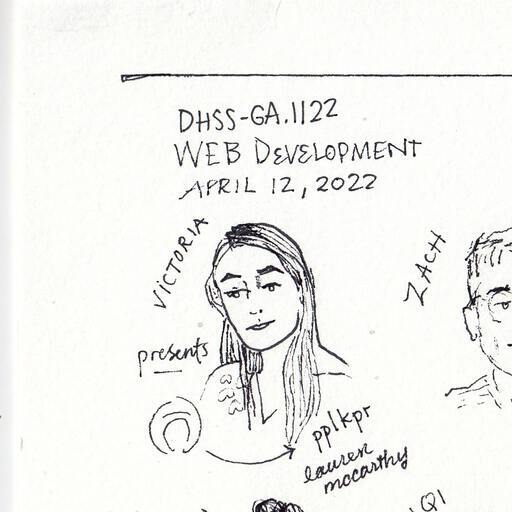 DHSS-GA.1122
WEB DEVELOPMENT
APRIL 12, 2022
VICTORIA
ZACH
presents
pplkpr
lauren
mccarthy
QI